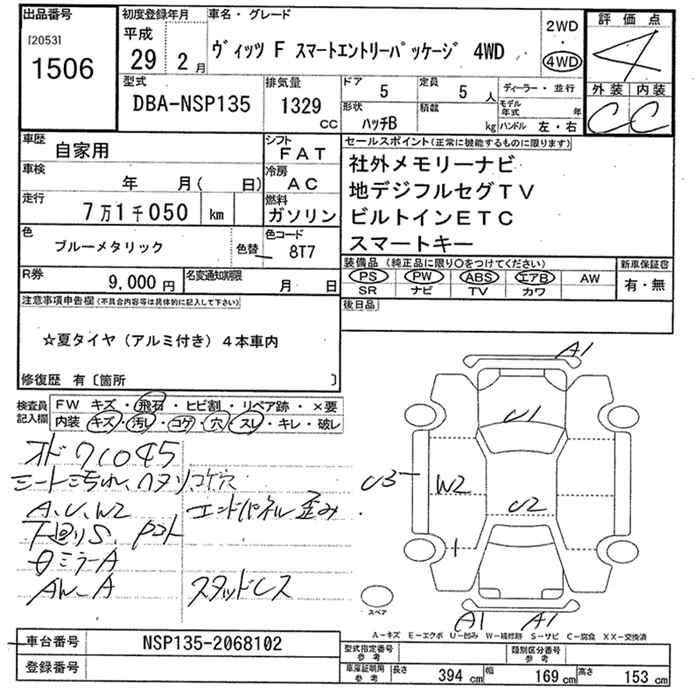 出品番号 初度登録年月 車名・グレード 評価点
[2053] 平成 2WD
1506 29年 2月 ヴィッツ F スマートエントリーパッケージ 4WD 4WD 4
型式 排気量 ドア 定員 ディーラー・並行 外装 内装
DBA-NSP135 1329 CC 5 5人 モデル年式 年 C C
形状 積載
ハッチB kg ハンドル 左・右
車歴 シフト セールスポイント(正常に機能するものに限ります)
自家用 FAT 社外メモリーナビ
車検 冷房 地デジフルセグTV
年 月( 日) AC ビルトインETC
走行 燃料 スマートキー
7万1千050 km ガソリン
色 色替 色コード
ブルーメタリック 8T7
装備品(純正品に限り○をつけてください) 新車保証書
R券 名変通知期限 PS PW ABS エアB AW 有・無
9,000円 月 日 SR ナビ TV カワ
注意事項申告欄(不具合内容等は具体的に記入して下さい) 後日品
☆夏タイヤ(アルミ付き)4本車内
修復歴 有〔箇所 〕
検査員記入欄 FW キズ・飛石・ヒビ割・リペア跡・×要
内装 キズ・汚レ・コゲ・穴・スレ・キレ・破レ
シート汚れ、ハタリコゲ穴
A、U、W2 エンドパネル歪み
下廻りS、
ミラーA
AW-A スタッドレス
A1
U1
U3
W2
U2
A1 A1
スペア
A-キズ E-エクボ U-凹み W-補修跡 S-サビ C-腐食 XX-交換済
車台番号 NSP135-2068102 型式指定番号 参考 類別区分番号 参考
登録番号 車庫証明用 参考 長さ 394cm 幅 169cm 高さ 153cm